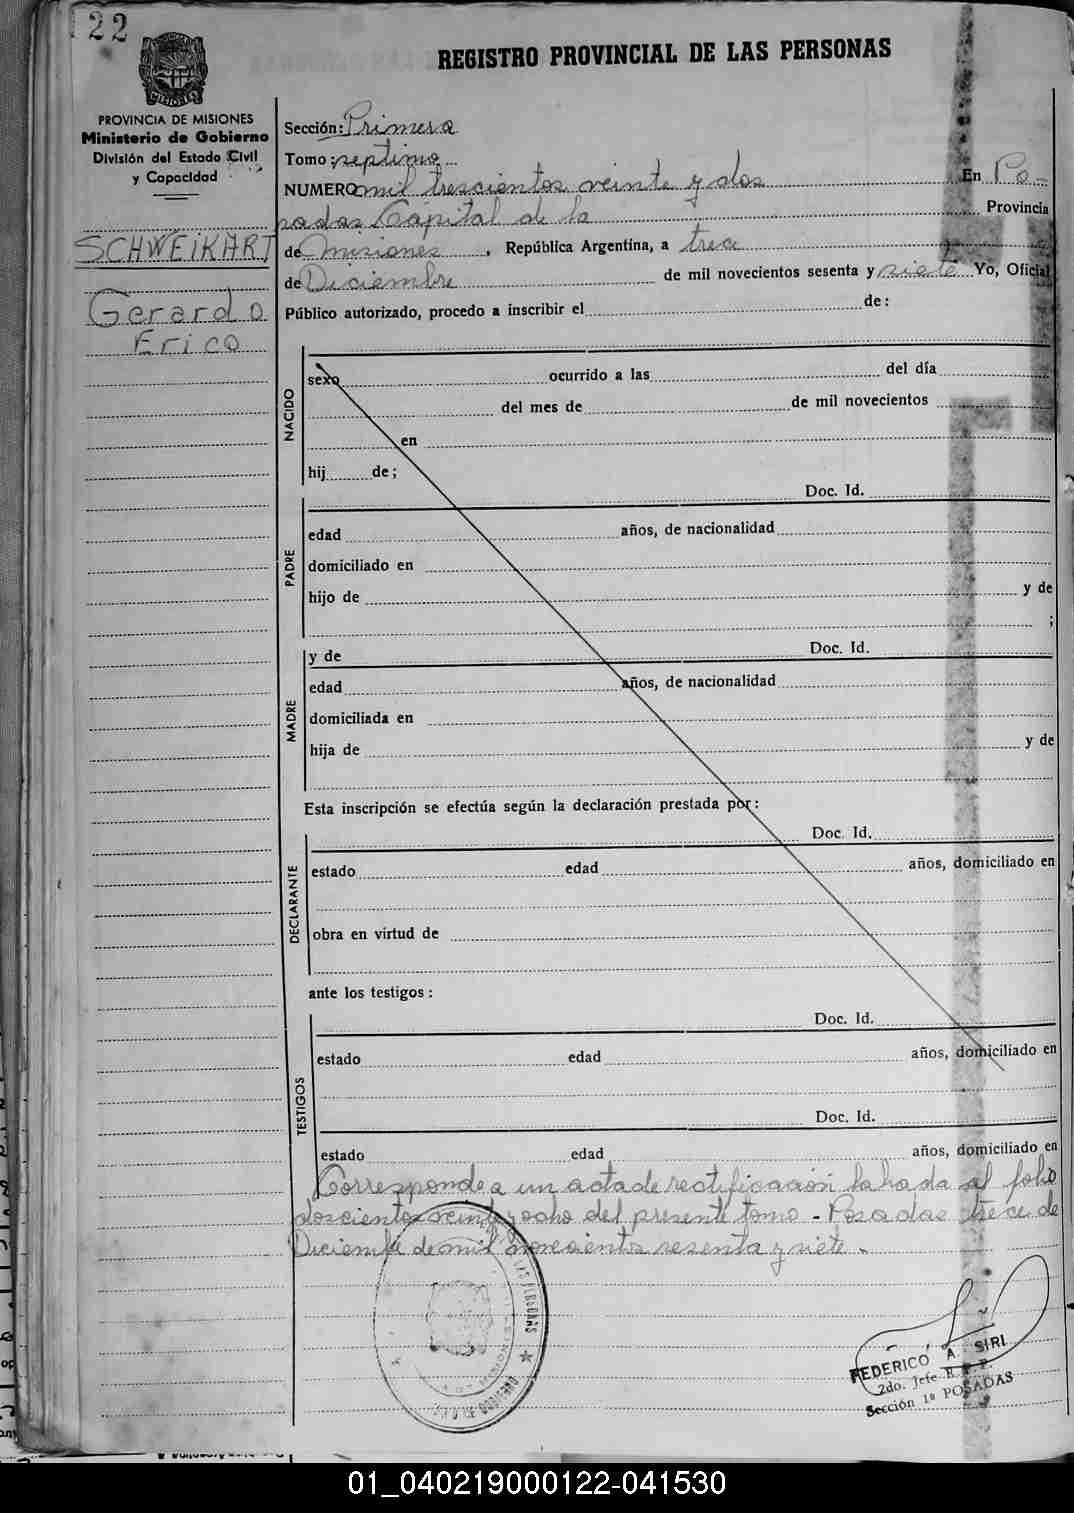 122
REGISTRO PROVINCIAL DE LAS PERSONAS
PROVINCIA DE MISIONES
Ministerio de Gobierno
División del Estado Civil
y Capacidad
SCHWEIKART
Gerardo
Erico
Sección: Primera
Tomo: septimo
NUMERO mil trescientos veinte y dos En Po-
sadas Capital de la Provincia
de Misiones, República Argentina, a trece
de Diciembre de mil novecientos sesenta y siete Yo, Oficial
Público autorizado, procedo a inscribir el de:
NACIDO
sexo ocurrido a las del día
del mes de de mil novecientos
en
hij de;
Doc. Id.
PADRE
edad años, de nacionalidad
domiciliado en
hijo de y de
;
y de Doc. Id.
MADRE
edad años, de nacionalidad
domiciliada en
hija de y de
Esta inscripción se efectúa según la declaración prestada por:
Doc. Id.
DECLARANTE
estado edad años, domiciliado en
obra en virtud de
ante los testigos:
Doc. Id.
TESTIGOS
estado edad años, domiciliado en
Doc. Id.
estado edad años, domiciliado en
Corresponde a un acta de rectificación labrada al folio
doscientos veinte y ocho del presente tomo - Posadas trece de
Diciembre de mil novecientos sesenta y siete.
FEDERICO A. SIRI
2do. Jefe R. P. P.
Sección 1ª POSADAS
01_040219000122-041530